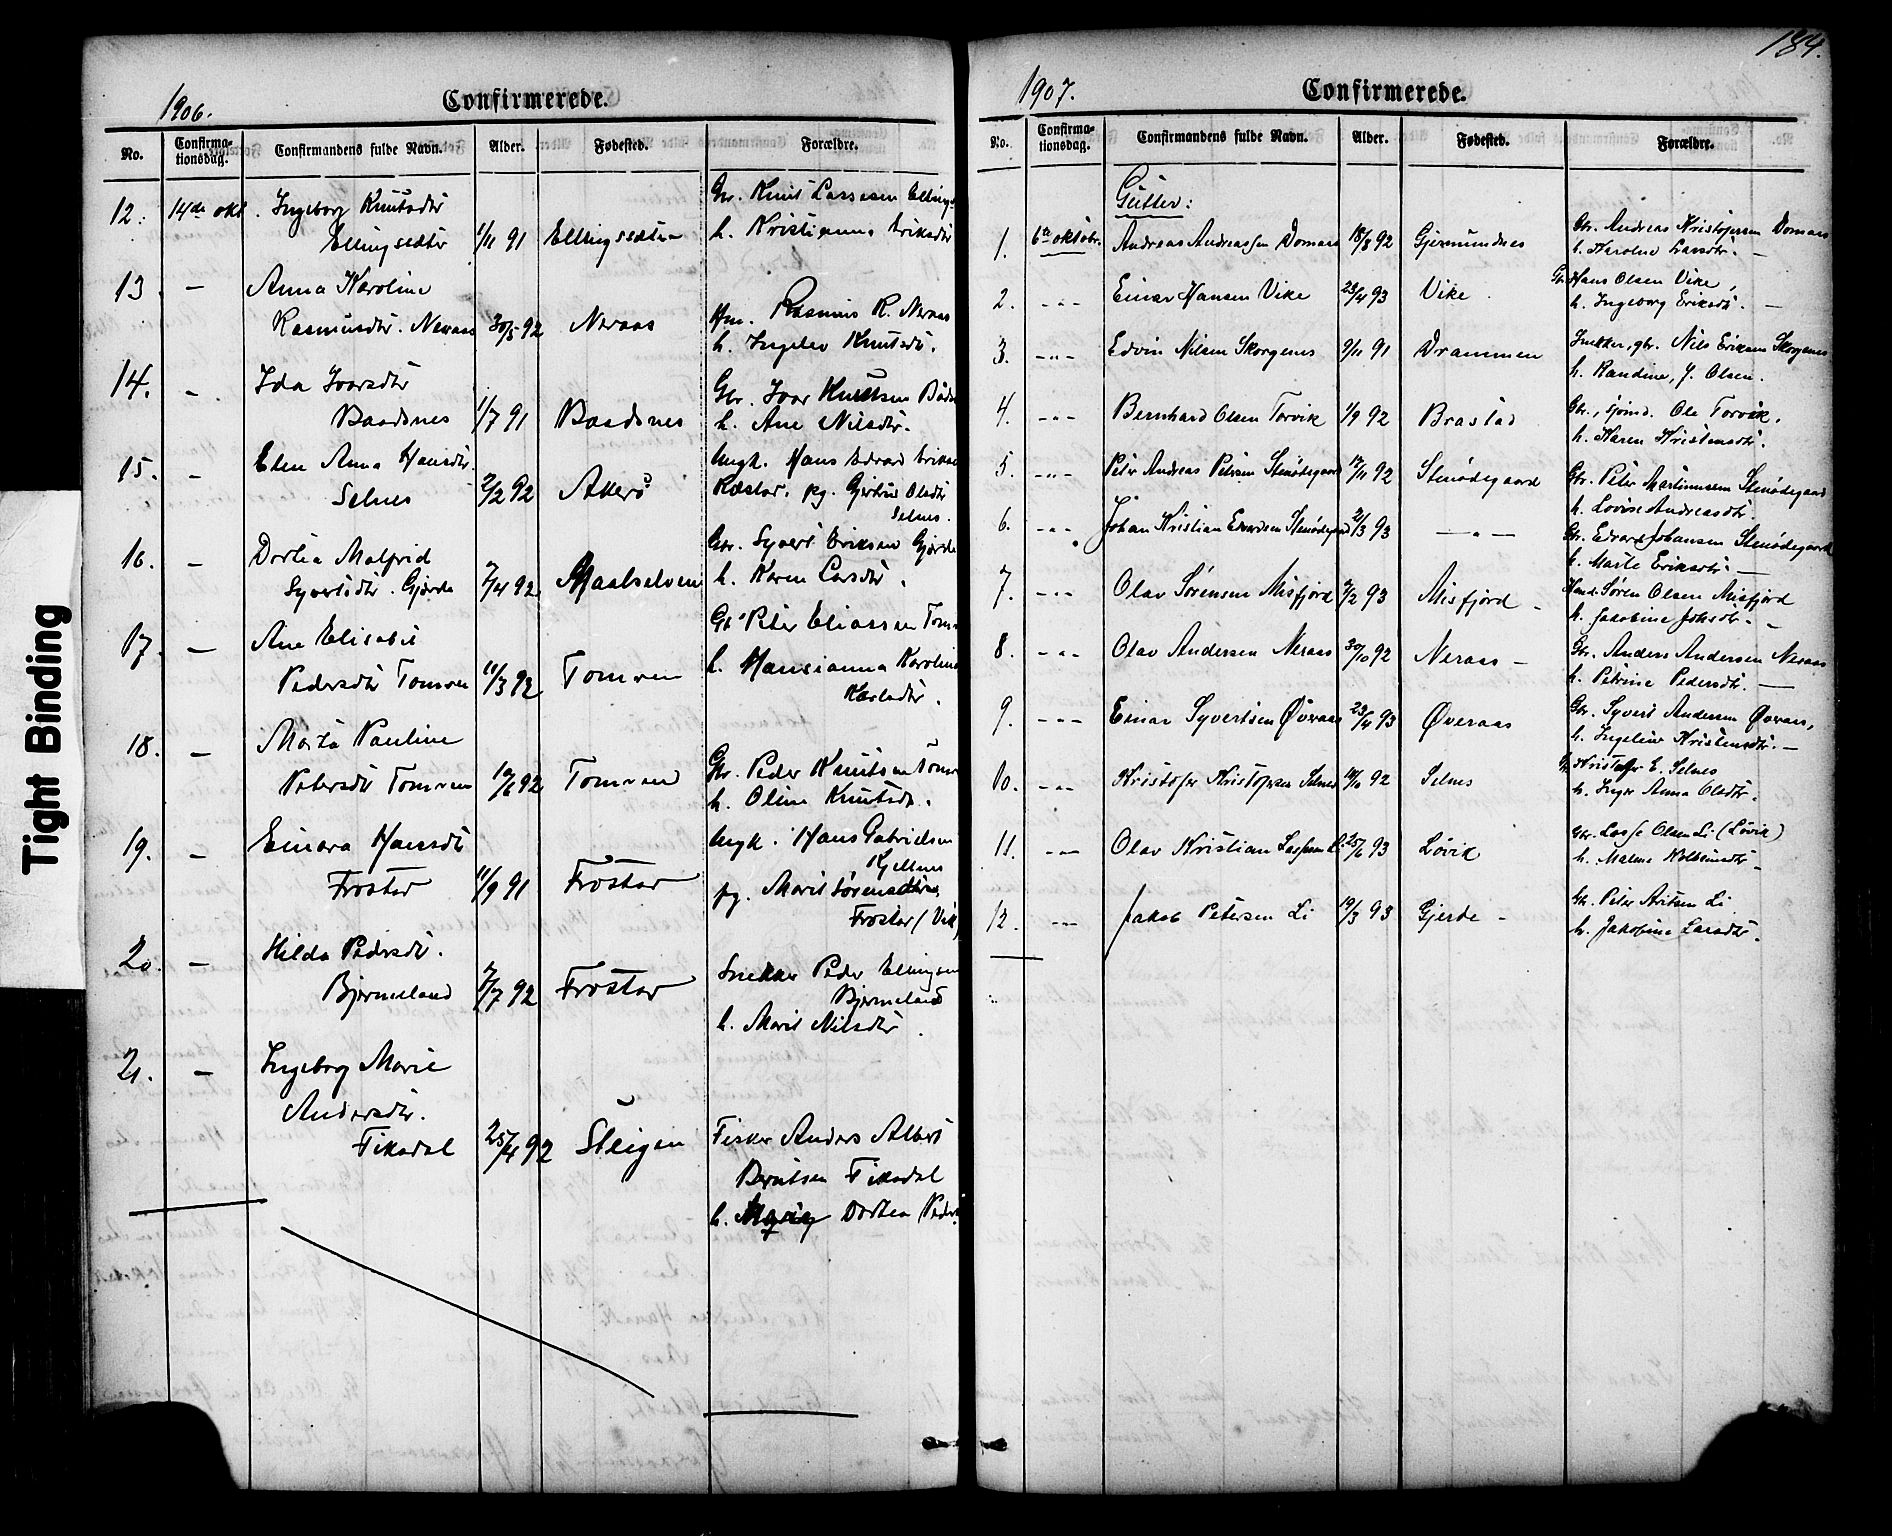 Tight Binding
1906.
Confirmerede.
No. Confirma-tionsdag. Confirmandens fulde Navn. Alder. Fødested. Forældre.
12. 14de okt. Ingeborg Knutsdtr Gbr. Knut Lassesen Ellings
Ellingsæter 1/11 91 Ellingsæter h. Kristianna Eriksdtr
13. – Anna Karoline
Rasmusdtr. Neraas 30/5 92 Neraas Hm. Rasmus R. Neraas
h. Ingelev Knutsdt.
14. – Ida Ivarsdtr Gbr. Ivar Knutsen
Baadsnes 1/7 91 Baadsnes h. Ane Nilsdtr.
15. – Elen Anna Hansdtr. Ungk. Hans Edvard
Selnes 2/2 92 Akerø pg. Gjertrud Olsdtr
Selnes.
16. – Dortea Malfrid Gbr. Syvert Eriksen Gjerde
Syvertsdtr. Gjerde 7/4 92 Maalselven h. Karen Larsdtr.
17. – Ane Elisabet Gbr Peter Eliassen Tom
Pedersdtr Tomren 11/3 92 Tomren h. Hansianna Karoline
Karlsdtr.
18. – Marta Pauline
Petersdt Tomren 92 Tomren Gbr. Peder Knutsen Tomr
h. Oline Knutsdt.
19. – Einara Hansdt Ungk. Hans Gabrielsen
Kjelnes
Frostar 11/9 91 Frostar pg. Marit Sørensdtr
Frostar (Vik)
20. – Hilda Pedersdt. Snekker Peder Ellingsen
Bjermeland 7/7 92 Frostar Bjermeland
h. Marit Nilsdtr.
21. – Ingeborg Marie
Andersdtr.
Fiksdal 25/4 92 Steigen Fisker Anders Albert
Berntsen Fiksdal
h. Dortea Peders
184.
1907.
Confirmerede.
No. Confirma-tionsdag. Confirmandens fulde Navn. Alder. Fødested. Forældre.
Gutter:
1. 6te oktobr. Andreas Andreassen Domaas 18/8 92 Gjermundnes Gbr. Andreas Kristofersen Domaas
h. Karoline Larsdtr. –
2. -"- Einar Hansen Vike 23/4 93 Vike. Gbr. Hans Olsen Vike,
h. Ingeborg Eriksdt. –
3. -"- Edvin Nilsen Skorgenes 9/11 91 Drammen Snekker, gbr. Nils Eriksen Skorgenes
h. Randine, f. Olsen.
4. -"- Bernhard Olsen Torvik 1/9 92 Brastad Gbr., sjømd. Ole Torvik,
h. Karen Kristensdtr.
5. -"- Peter Andreas Petersen Stenødegaard 17/11 92 Stenødegaard Gbr. Peter Martinussen Stenødegaard
h. Lovise Andreasdtr.
6. -"- Johan Kristian Edvardsen Stenødegaard 2/3 93 –"– Gbr. Edvard Johansen Stenødegaard
h. Marte Eriksdtr. –
7. -"- Olav Sørensen Misfjord 7/2 93 Misfjord – Hand. Søren Olsen Misfjord
h. Jakobine Johsdtr. –
8. -"- Olav Andersen Neraas 30/10 92 Neraas – Gbr. Anders Andersen Neraas
h. Petrine Pedersdtr. –
9. -"- Einar Syvertsen Øveraas 23/4 93 Øveraas Gbr. Syvert Andersen Øveraas,
h. Ingeline Kristensdtr. –
10. -"- Kristofer Kristofersen Selnes 92 Selnes Gbr. Kristofer E. Selnes
h. Inger Anna Olsdtr.
11. -"- Olav Kristian Lassesen Li 25/6 93 Løvik Gbr. Lasse Olsen Li (Løvik)
h. Malene Kolbeinsdtr –
12. -"- Jakob Petersen Li 19/3 93 Gjerde – Gbr. Peter Aritsen Li
h. Jakobine Larsdtr.